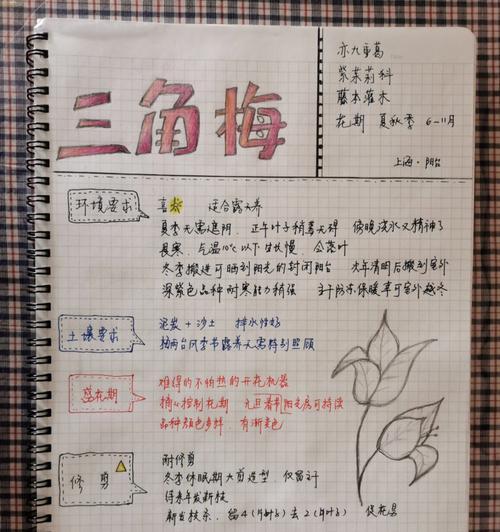 三角梅
亦九重葛
紫茉莉科
藤本灌木
花期 夏秋季 6-11月
上海·阳台
环境要求
喜光 适合露天养
夏季无需遮阴，正午叶子稍蔫无碍 傍晚浇水又精神了
畏寒，气温10℃以下生长慢，会落叶
冬季搬进可晒到阳光的封闭阳台 次年清明后搬到室外
深紫色品种耐寒能力稍强 主干防冻保暖草可室外越冬
土壤要求
泥炭 + 沙土 排水性好
抽两台风季节露养无需特别照顾
盛花期
难得的不怕热的开花机器
精心控制花期 元旦春节阳光房可持续
品种颜色多样，有渐变色
修剪
耐修剪
冬季休眠期大剪造型，仅留主干
待来年发新枝
新发枝条，留4(片叶子)去2(片叶子) 促花苞